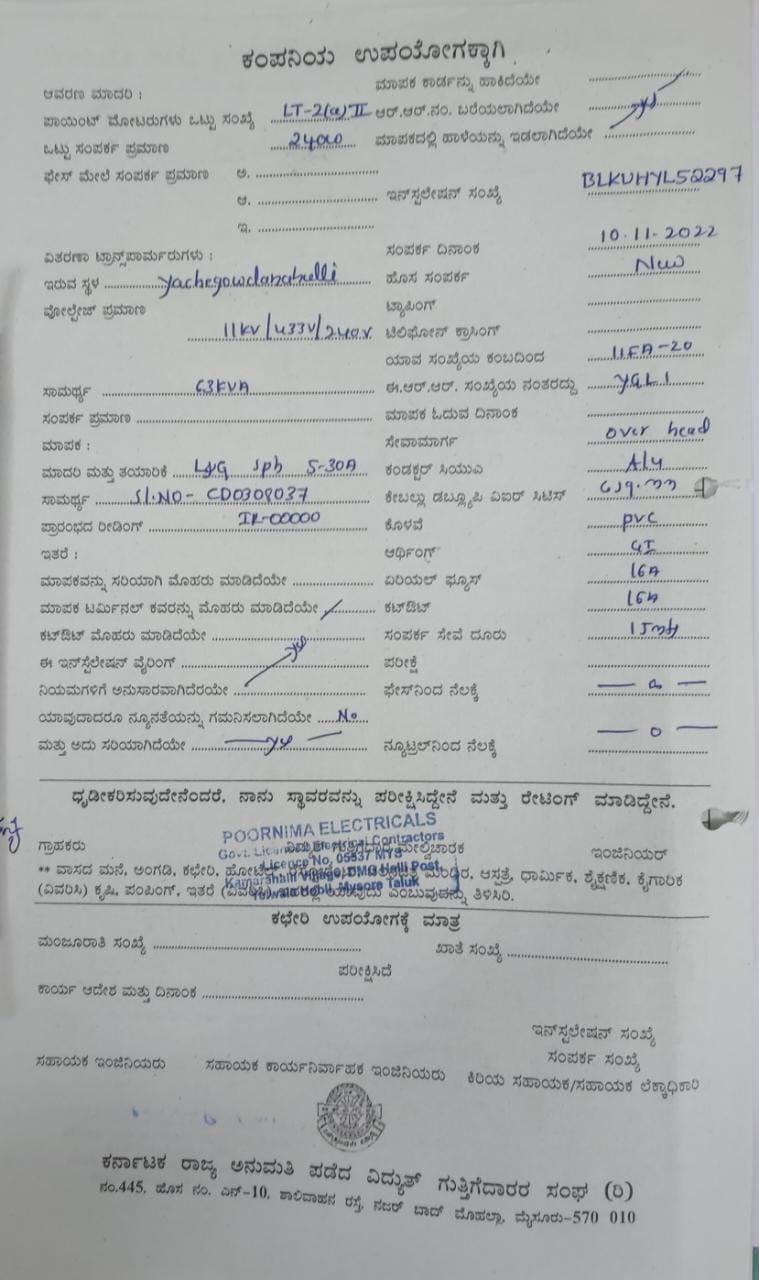 ಕಂಪನಿಯ ಉಪಯೋಗಕ್ಕಾಗಿ
ಆವರಣ ಮಾದರಿ : ಮಾಪಕ ಕಾರ್ಡನ್ನು ಹಾಕಿದೆಯೇ
ಪಾಯಿಂಟ್ ಮೋಟರುಗಳು ಒಟ್ಟು ಸಂಖ್ಯೆ LT-2(a) II ಆರ್.ಆರ್.ನಂ. ಬರೆಯಲಾಗಿದೆಯೇ yes
ಒಟ್ಟು ಸಂಪರ್ಕ ಪ್ರಮಾಣ 2400 ಮಾಪಕದಲ್ಲಿ ಹಾಳೆಯನ್ನು ಇಡಲಾಗಿದೆಯೇ
ಫೇಸ್ ಮೇಲೆ ಸಂಪರ್ಕ ಪ್ರಮಾಣ ಅ.
ಆ. ಇನ್‌ಸ್ಟಲೇಷನ್ ಸಂಖ್ಯೆ BLKUHYL52297
ಇ.
ವಿತರಣಾ ಟ್ರಾನ್ಸ್‌ಪಾರ್ಮರುಗಳು : ಸಂಪರ್ಕ ದಿನಾಂಕ 10.11.2022
ಇರುವ ಸ್ಥಳ yachegowdanahalli ಹೊಸ ಸಂಪರ್ಕ New
ವೋಲ್ಟೇಜ್ ಪ್ರಮಾಣ ಟ್ಯಾಪಿಂಗ್
11kv/433V/240v ಟೆಲಿಫೋನ್ ಕ್ರಾಸಿಂಗ್
ಯಾವ ಸಂಖ್ಯೆಯ ಕಂಬದಿಂದ 11FA-20
ಸಾಮರ್ಥ್ಯ 63KVA ಈ.ಆರ್.ಆರ್. ಸಂಖ್ಯೆಯ ನಂತರದ್ದು YGL1
ಸಂಪರ್ಕ ಪ್ರಮಾಣ ಮಾಪಕ ಓದುವ ದಿನಾಂಕ
ಮಾಪಕ : ಸೇವಾಮಾರ್ಗ over head
ಮಾದರಿ ಮತ್ತು ತಯಾರಿಕೆ L&G sph 5-30A ಕಂಡಕ್ಟರ್ ಸಿಯುಎ Aly
ಸಾಮರ್ಥ್ಯ Sl.NO- CD0308037 ಕೇಬಲ್ಲು ಡಬ್ಲ್ಯೂಪಿ ವಿಐರ್ ಸಿಟಿಸ್ 6sq.mm
ಪ್ರಾರಂಭದ ರೀಡಿಂಗ್ IR-00000 ಕೊಳವೆ pvc
ಇತರೆ : ಆರ್ಥಿಂಗ್ GI
ಮಾಪಕವನ್ನು ಸರಿಯಾಗಿ ಮೊಹರು ಮಾಡಿದೆಯೇ ಏರಿಯಲ್ ಫ್ಯೂಸ್ 16A
ಮಾಪಕ ಟರ್ಮಿನಲ್ ಕವರನ್ನು ಮೊಹರು ಮಾಡಿದೆಯೇ ಕಟ್‌ಔಟ್ 16A
ಕಟ್‌ಔಟ್ ಮೊಹರು ಮಾಡಿದೆಯೇ ಸಂಪರ್ಕ ಸೇವೆ ದೂರು
ಈ ಇನ್‌ಸ್ಟೆಲೇಷನ್ ವೈರಿಂಗ್ yes ಪರೀಕ್ಷೆ
ನಿಯಮಗಳಿಗೆ ಅನುಸಾರವಾಗಿದೆರಯೇ ಫೇಸ್‌ನಿಂದ ನೆಲಕ್ಕೆ
ಯಾವುದಾದರೂ ನ್ಯೂನತೆಯನ್ನು ಗಮನಿಸಲಾಗಿದೆಯೇ No
ಮತ್ತು ಅದು ಸರಿಯಾಗಿದೆಯೇ yes ನ್ಯೂಟ್ರಲ್‌ನಿಂದ ನೆಲಕ್ಕೆ — 0 —
ಧೃಡೀಕರಿಸುವುದೇನೆಂದರೆ, ನಾನು ಸ್ಥಾವರವನ್ನು ಪರೀಕ್ಷಿಸಿದ್ದೇನೆ ಮತ್ತು ರೇಟಿಂಗ್ ಮಾಡಿದ್ದೇನೆ.
POORNIMA ELECTRICALS
Govt. Licenced Electrical Contractors
Licence No, 05537 MYS
Village, DMG Halli Post,
Hobli, Mysore Taluk
ಗ್ರಾಹಕರು ಮೇಲ್ವಿಚಾರಕ ಇಂಜಿನಿಯರ್
** ವಾಸದ ಮನೆ, ಅಂಗಡಿ, ಕಛೇರಿ, ಹೋಟೆಲ್ ಮಂದಿರ, ಆಸ್ಪತ್ರೆ, ಧಾರ್ಮಿಕ, ಶೈಕ್ಷಣಿಕ, ಕೈಗಾರಿಕೆ
(ವಿವರಿಸಿ) ಕೃಷಿ, ಪಂಪಿಂಗ್, ಇತರೆ ಯಾವುದು ಎಂಬುವುದನ್ನು ತಿಳಿಸಿರಿ.
ಕಛೇರಿ ಉಪಯೋಗಕ್ಕೆ ಮಾತ್ರ
ಮಂಜೂರಾತಿ ಸಂಖ್ಯೆ ಖಾತೆ ಸಂಖ್ಯೆ
ಪರೀಕ್ಷಿಸಿದೆ
ಕಾರ್ಯ ಆದೇಶ ಮತ್ತು ದಿನಾಂಕ
ಇನ್‌ಸ್ಟಲೇಷನ್ ಸಂಖ್ಯೆ
ಸಂಪರ್ಕ ಸಂಖ್ಯೆ
ಸಹಾಯಕ ಇಂಜಿನಿಯರು ಸಹಾಯಕ ಕಾರ್ಯನಿರ್ವಾಹಕ ಇಂಜಿನಿಯರು ಕಿರಿಯ ಸಹಾಯಕ/ಸಹಾಯಕ ಲೆಕ್ಕಾಧಿಕಾರಿ
ಕರ್ನಾಟಕ ರಾಜ್ಯ ಅನುಮತಿ ಪಡೆದ ವಿದ್ಯುತ್ ಗುತ್ತಿಗೆದಾರರ ಸಂಘ (ರಿ)
ನಂ.445, ಹೊಸ ನಂ. ಎನ್-10, ಶಾಲಿವಾಹನ ರಸ್ತೆ, ನಜರ್ ಬಾದ್ ಮೊಹಲ್ಲಾ, ಮೈಸೂರು-570 010